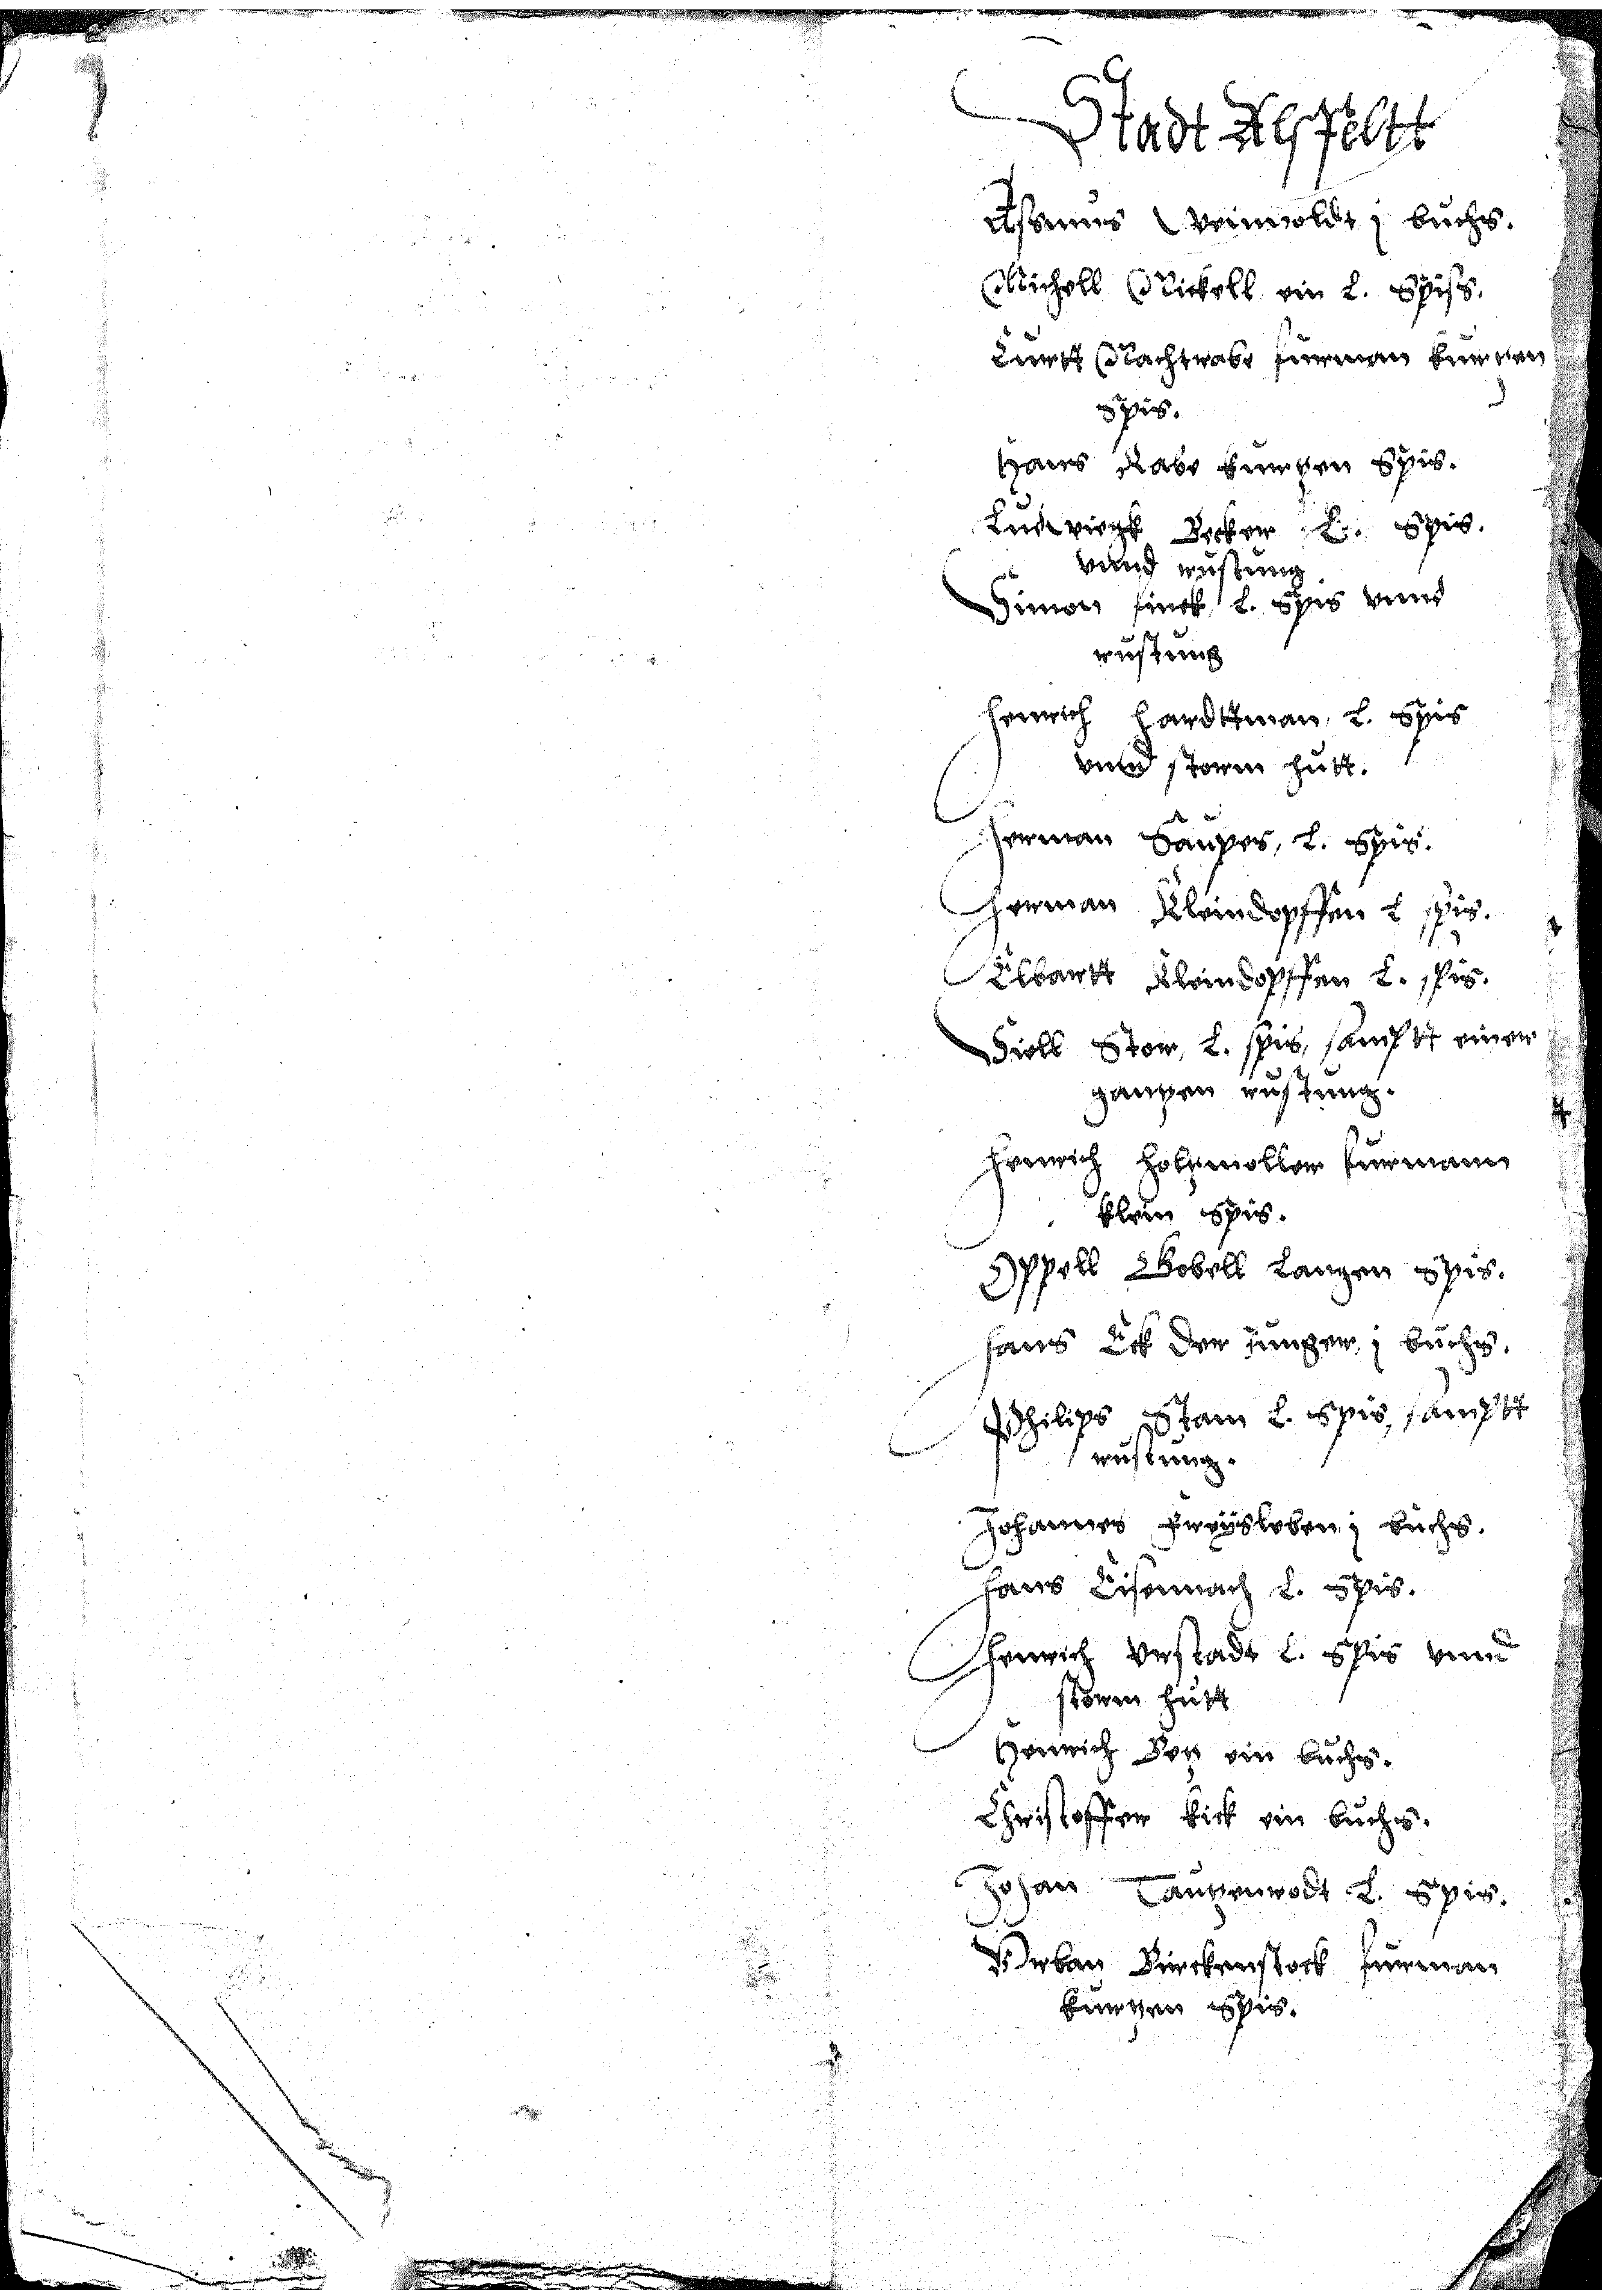 Stadt Alsfeltt
Assmus Weinwoldt j buchs.
Michell Nickell ein l. Spiss.
Curtt Nachtrabe furman kurtzen
spis.
Hans Rabe kurtzen Spis.
Ludwiegk Becker L. Spis.
vnnd rustung
Simon finck l. Spis vnnd
rustung
Henrich Hardttman, l. Spis
vnnd storm hutt.
Herman Saupes, l. Spis.
Herman Kleindopffen l spis.
Elbartt Kleindopffen l. spis.
Diell Stor, l. spis, samptt einer
gantzen rustung.
Henrich Holtzmoller furmann
klein spis.
Oppell Gobell Langen Spis.
Hans Eck der Junger, j buchs.
Philips Stam l. Spis, samptt
rustung.
Johannes Freysleben j buchs.
Hans Eisennach l. Spis.
Henrich Vrstadt l. Spis vnnd
storm hutt
Henrich Betz ein buchs.
Christoffer kick ein buchs.
Johan Tautzenrodt l. Spis.
Vrban Birckenstock furman
kurtzen Spis.